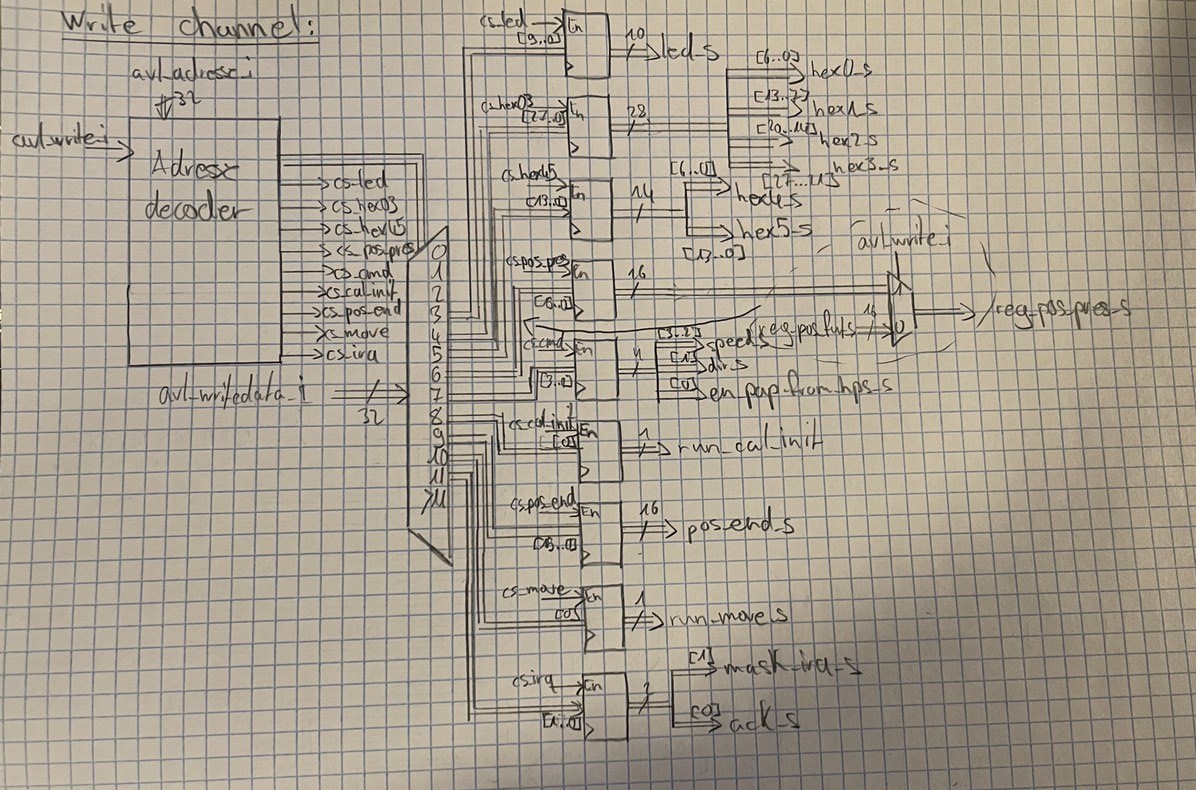 Write channel:
avl_adresse_i
32
avl_write_i
Adress
decoder
cs_led
cs_hex03
cs_hex45
cs_pos_pres
cs_cmd
cs_cal_init
cs_pos_end
cs_move
cs_irq
avl_writedata_i
32
0
1
2
3
4
5
6
7
8
9
10
11
>11
cs_led
En
[9..0]
10
led_s
cs_hex03
En
[27..0]
28
[6..0]
hex0_s
[13..7]
hex1_s
[20..14]
hex2_s
hex3_s
[27..21]
cs_hex45
En
[13..0]
14
[6..0]
hex4_s
hex5_s
[13..0]
cs_pos_pres
En
16
avl_write_i
1
0
reg_pos_pres_s
16
cs_cmd
En
[3..0]
4
[3..2]
speed_s
[1]
dir_s
[0]
en_pap_from_hps_s
cs_cal_init
En
[0]
1
run_cal_init
cs_pos_end
En
[15..0]
16
pos_end_s
cs_move
En
[0]
1
run_move_s
cs_irq
En
[1..0]
2
[1]
mask_irq_s
[0]
ack_s